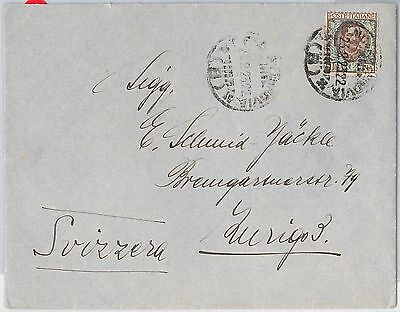 POSTE ITALIANE
Sigg.
E. Schmid-Jäckle
Bremgartnerstr. 79
Zurigo 3.
Svizzera